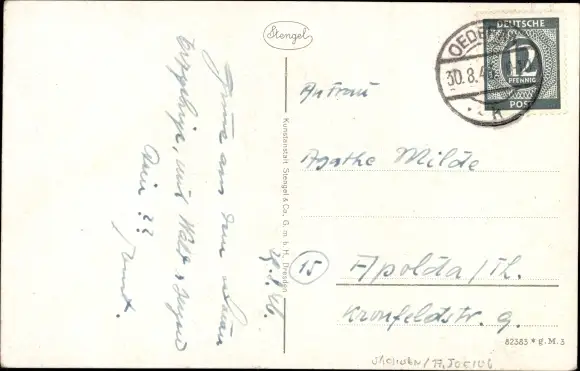 Stengel
Grüße aus dem schönen
Erzgebirge, und Wald u. Jugend
Dein ??
29.8.46.
Kunstanstalt Stengel & Co., G. m. b. H., Dresden
DEUTSCHE
12
PFENNIG
POST
OEDE
30.8.4
An Frau
Agathe Milde
15
Apolda/Th.
Kronfeldstr. 9.
82383 * g. M. 3